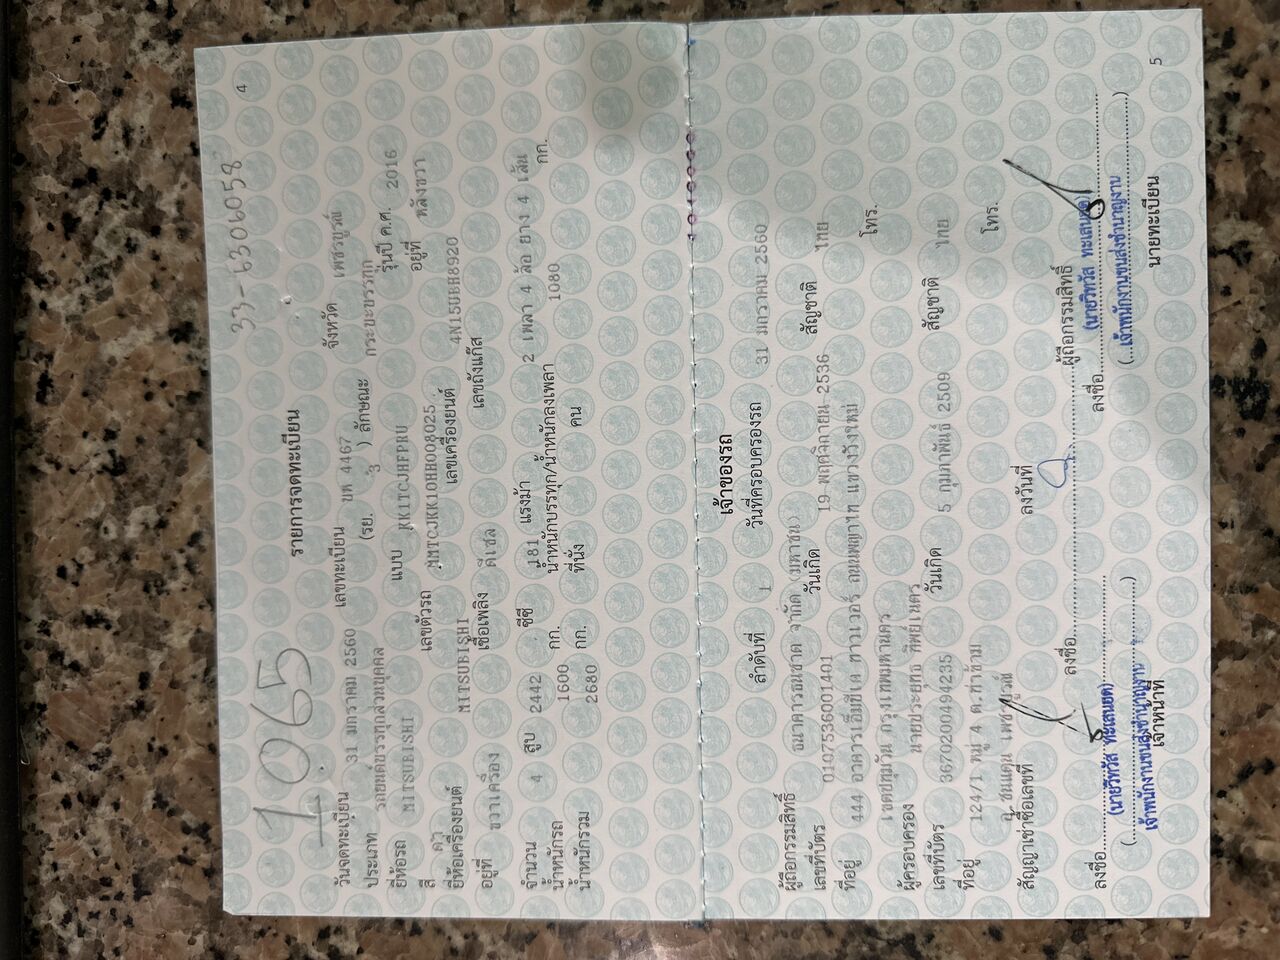 4
33-6306058
1065
รายการจดทะเบียน
วันจดทะเบียน 31 มกราคม 2560 เลขทะเบียน บห 4467 จังหวัด เพชรบูรณ์
ประเภท รถยนต์บรรทุกส่วนบุคคล (รย. 3 ) ลักษณะ กระบะบรรทุก
ยี่ห้อรถ MITSUBISHI แบบ KK1TCJHFPRU รุ่นปี ค.ศ. 2016
สี ดำ เลขตัวรถ MMTCJKK10HH008025 อยู่ที่ หลังขวา
ยี่ห้อเครื่องยนต์ MITSUBISHI เลขเครื่องยนต์ 4N15UBH8920
อยู่ที่ ขวาเครื่อง เชื้อเพลิง ดีเซล เลขถังแก๊ส
จำนวน 4 สูบ 2442 ซีซี 181 แรงม้า 2 เพลา 4 ล้อ ยาง 4 เส้น
น้ำหนักรถ 1600 กก. น้ำหนักบรรทุก/น้ำหนักลงเพลา 1080 กก.
น้ำหนักรวม 2680 กก. ที่นั่ง คน
เจ้าของรถ
ลำดับที่ 1 วันที่ครอบครองรถ 31 มกราคม 2560
ผู้ถือกรรมสิทธิ์ ธนาคารธนชาต จำกัด (มหาชน)
เลขที่บัตร 0107536001401 วันเกิด 19 พฤศจิกายน 2536 สัญชาติ ไทย
ที่อยู่ 444 อาคารเอ็มบีเค ทาวเวอร์ ถนนพญาไท แขวงวังใหม่
เขตปทุมวัน กรุงเทพมหานคร โทร.
ผู้ครอบครอง นายประยุทธ ทิพย์เนตร
เลขที่บัตร 3670200494235 วันเกิด 5 กุมภาพันธ์ 2509 สัญชาติ ไทย
ที่อยู่ 124/1 หมู่ 4 ต.ท่าข้าม
อ.ชนแดน เพชรบูรณ์ โทร.
สัญญาเช่าซื้อเลขที่ ลงวันที่
ลงชื่อ ผู้ถือกรรมสิทธิ์
ลงชื่อ ลงชื่อ
(นายวิทวัส ทะเสนฮด) (นายวิทวัส ทะเสนฮด)
(...เจ้าพนักงานขนส่งชำนาญงาน) (...เจ้าพนักงานขนส่งชำนาญงาน)
เจ้าหน้าที่ นายทะเบียน
5